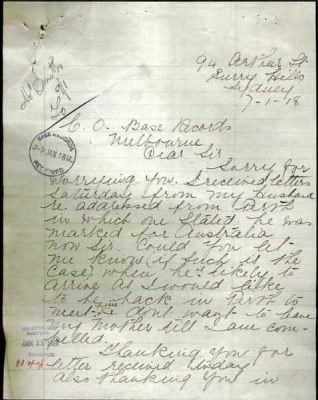 94 Arthur St
Surry Hills
Sydney
7-1-18
BASE RECORDS
9 JAN 1918
RECEIVED
C. O. Base Records
Melbourne
Dear Sir
Sorry for
worrying you. I received letters
Saturday from my Husband
re addressed from Perth
in which one stated he was
marked for Australia
now Sir. Could you let
me know (if such is the
case) when he's likely to
arrive as I would like
to be back in Perth to
meet him dont want to leave
my Mother till I am com-
pelled.
JAN 23
Thanking you for
letter received today
also thanking you in